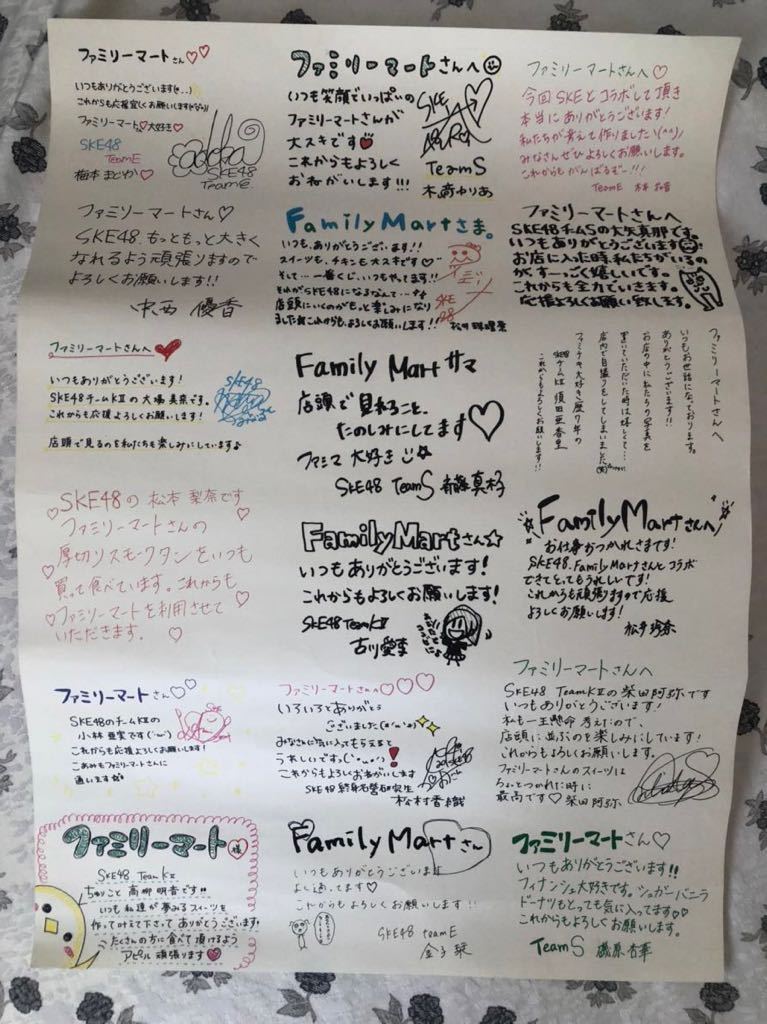 ファミリーマートさん♡♡
いつもありがとうございます
これからも応援宜しくお願いします
ファミリーマート♡大好き♡
SKE48
TeamE
梅本まどか♡
SKE48
TeamE
ファミリーマートさんへ
いつも笑顔でいっぱいの
ファミリーマートさんが
大スキです
これからもよろしく
おねがいします!!!
SKE
TeamS
木﨑ゆりあ
ファミリーマートさんへ♡
今回SKEとコラボして頂き
本当にありがとうございます!
私たちが考えて作りました\(^^)/
みなさんぜひよろしくお願いします。
これからもがんばるぞー!!!
TeamE
ファミリーマートさん♡
SKE48.もっともっと大きく
なれるよう頑張りますので
よろしくお願いします!!
中西 優香
FamilyMartさま。
いつも、ありがとうございます!!
スイーツも、チキンも大スキです♡
そして…一番くじ、いつもやってます!
それがSKE48になるなんて…
店頭にいくのがもっと楽しみになり
ました これからも、よろしくお願いします!!
松井珠理奈
SKE
48
ファミリーマートさんへ
SKE48チームSの大矢真那です。
いつもありがとうございます
お店に入った時、私たちがいるの
がすーっごく嬉しいです。
これからも全力でいきます。
応援よろしくお願い致します。
ファミリーマートさんへ♥
いつもありがとうございます!
SKE48チームKⅡの大場美奈です。
これからも応援よろしくお願いします!
店頭で見るのを私たちも楽しみにしています♪
SKE48
Family Mart サマ
店頭で見れること、
たのしみにしてます♡
ファミマ 大好き☆
SKE48 TeamS 斉藤真木子
ファミリーマートさんへ
いつもお世話になっております。
ありがとうございます!!
お店の中に私たちの写真を
置いていただいた時は嬉しくて…
店内で自撮りをしてしまいました
ファミチキ大好き歴7年の
SKE48チームKⅡ 須田亜香里
これからもよろしくお願いします!!
SKE48の松本梨奈です
ファミリーマートさんの
厚切りスモークタンをいつも
買って食べています。これからも
ファミリーマートを利用させて
いただきます。♡
FamilyMartさん☆
いつもありがとうございます!
これからもよろしくお願いします!
SKE48 TeamKⅡ
古川愛李
FamilyMartさんへ
お仕事おつかれさまです!
SKE48.FamilyMartさんとコラボ
できてとってもうれしいです!
これからも頑張りますので応援
よろしくお願いします!
松井玲奈
ファミリーマートさん♡♡
SKE48のチームKⅡの
小林亜実です(´ω`)
これからも応援よろしくお願いします!
こあみもファミリーマートさんに
通います☆
ファミリーマートさんへ♡♡♡
いろいろとありがとう
ございました
みなさんに気に入ってもらえると
うれしいです。
これからもよろしくおねがいします
SKE48 終身名誉研究生
松村香織
ファミリーマートさんへ
SKE48 TeamKⅡの柴田阿弥です
いつもありがとうございます!
私も一生懸命考えたので、
店頭に並ぶのを楽しみにしています!
これからもよろしくお願いします。
ファミリーマートさんのスイーツは
ちょっとつかれた時に
最高です♡柴田阿弥
ファミリーマート様
SKE48 TeamKⅡ
ちゅりこと 高柳明音です!!
いつも私達が夢みるスイーツを
作って叶えて下さって ありがとうございます!
たくさんの方に食べて頂けるよう
アピル頑張ります♥
Family Martさん
いつもありがとうございます
よく通ってます♡
これからもよろしくお願いします!!
SKE48 teamE
金子栞
ファミリーマートさん♡
いつもありがとうございます!!
フィナンシェ大好きです。シュガーバニラ
ドーナツもとっても気に入ってます♡♡
これからもよろしくお願いします。
TeamS 磯原杏華